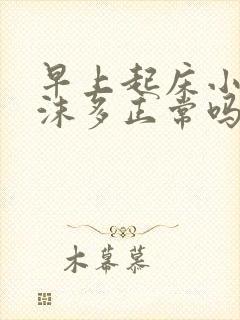 早上起床小
沫多正常吗
木幕慕